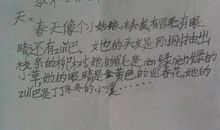 天。
春天像个小姑娘,头发有眉毛有眼
睛还有嘴巴。她的头发是刚刚抽出
枝条的柳树她的眉毛是 嫩绿的
小草她的眼睛是金黄色的迎春花,她的
嘴巴是丁冬冬的小溪……